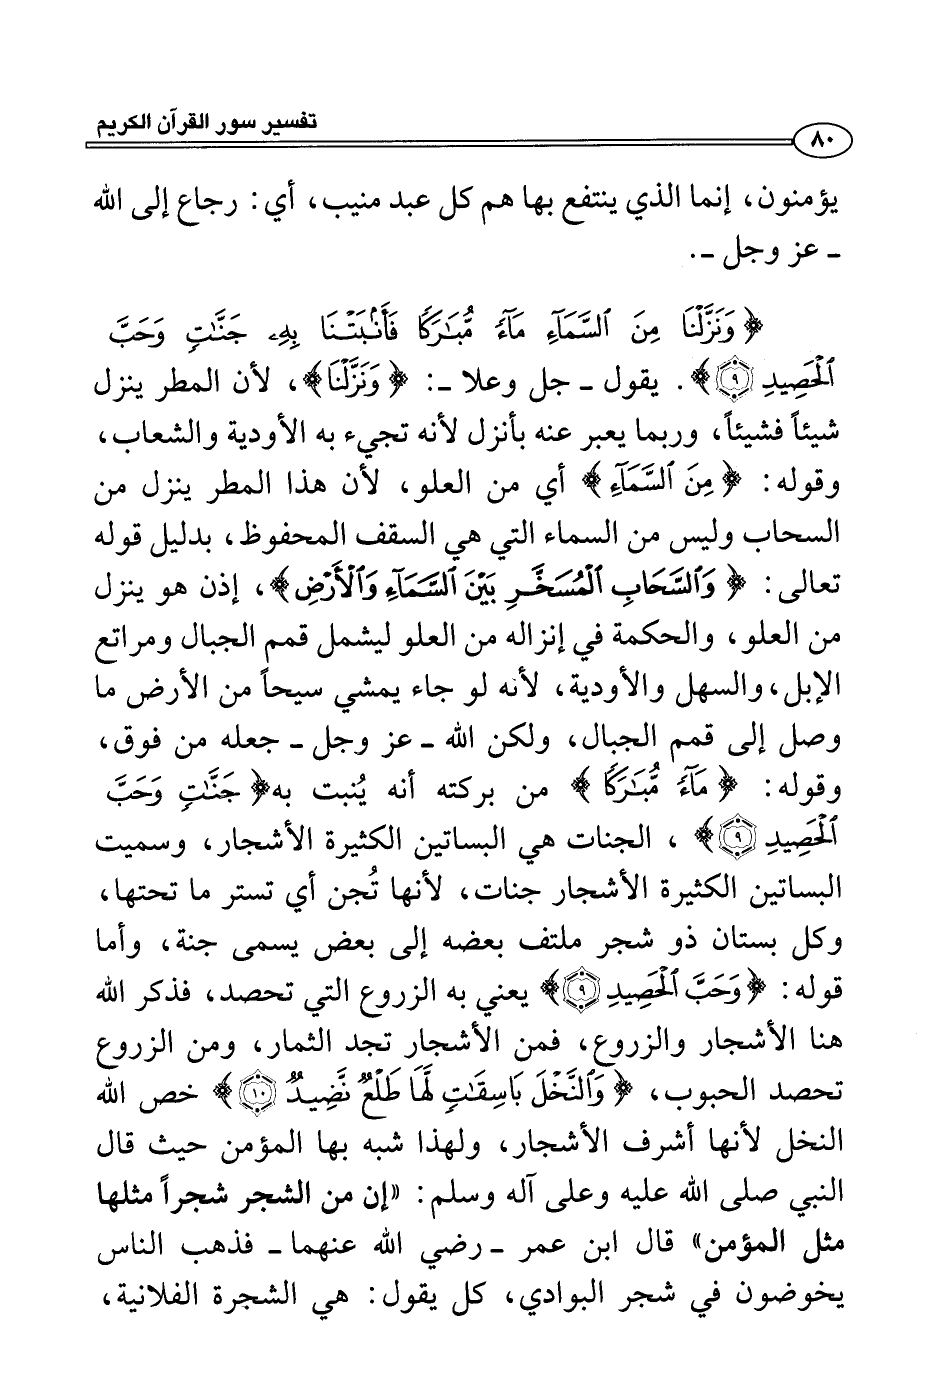 تفسير سور القرآن الكريم
٨٠
يؤمنون، إنما الذي ينتفع بها هم كل عبد منيب، أي: رجاع إلى الله
ـ عز وجل ـ.
﴿وَنَزَّلْنَا مِنَ ٱلسَّمَآءِ مَآءً مُّبَٰرَكًا فَأَنۢبَتْنَا بِهِۦ جَنَّٰتٍ وَحَبَّ
ٱلْحَصِيدِ ٩﴾. يقول ـ جل وعلا ـ: ﴿وَنَزَّلْنَا﴾، لأن المطر ينزل
شيئاً فشيئاً، وربما يعبر عنه بأنزل لأنه تجيء به الأودية والشعاب،
وقوله: ﴿مِنَ ٱلسَّمَآءِ﴾ أي من العلو، لأن هذا المطر ينزل من
السحاب وليس من السماء التي هي السقف المحفوظ، بدليل قوله
تعالى: ﴿وَٱلسَّحَابِ ٱلْمُسَخَّرِ بَيْنَ ٱلسَّمَآءِ وَٱلْأَرْضِ﴾، إذن هو ينزل
من العلو، والحكمة في إنزاله من العلو ليشمل قمم الجبال ومراتع
الإبل، والسهل والأودية، لأنه لو جاء يمشي سيحاً من الأرض ما
وصل إلى قمم الجبال، ولكن الله ـ عز وجل ـ جعله من فوق،
وقوله: ﴿مَآءً مُّبَٰرَكًا﴾ من بركته أنه يُنبت به﴿جَنَّٰتٍ وَحَبَّ
ٱلْحَصِيدِ ٩﴾، الجنات هي البساتين الكثيرة الأشجار، وسميت
البساتين الكثيرة الأشجار جنات، لأنها تُجن أي تستر ما تحتها،
وكل بستان ذو شجر ملتف بعضه إلى بعض يسمى جنة، وأما
قوله: ﴿وَحَبَّ ٱلْحَصِيدِ ٩﴾ يعني به الزروع التي تحصد، فذكر الله
هنا الأشجار والزروع، فمن الأشجار تجد الثمار، ومن الزروع
تحصد الحبوب، ﴿وَٱلنَّخْلَ بَاسِقَٰتٍ لَّهَا طَلْعٌ نَّضِيدٌ ١٠﴾ خص الله
النخل لأنها أشرف الأشجار، ولهذا شبه بها المؤمن حيث قال
النبي صلى الله عليه وعلى آله وسلم: «إن من الشجر شجراً مثلها
مثل المؤمن» قال ابن عمر ـ رضي الله عنهما ـ فذهب الناس
يخوضون في شجر البوادي، كل يقول: هي الشجرة الفلانية،